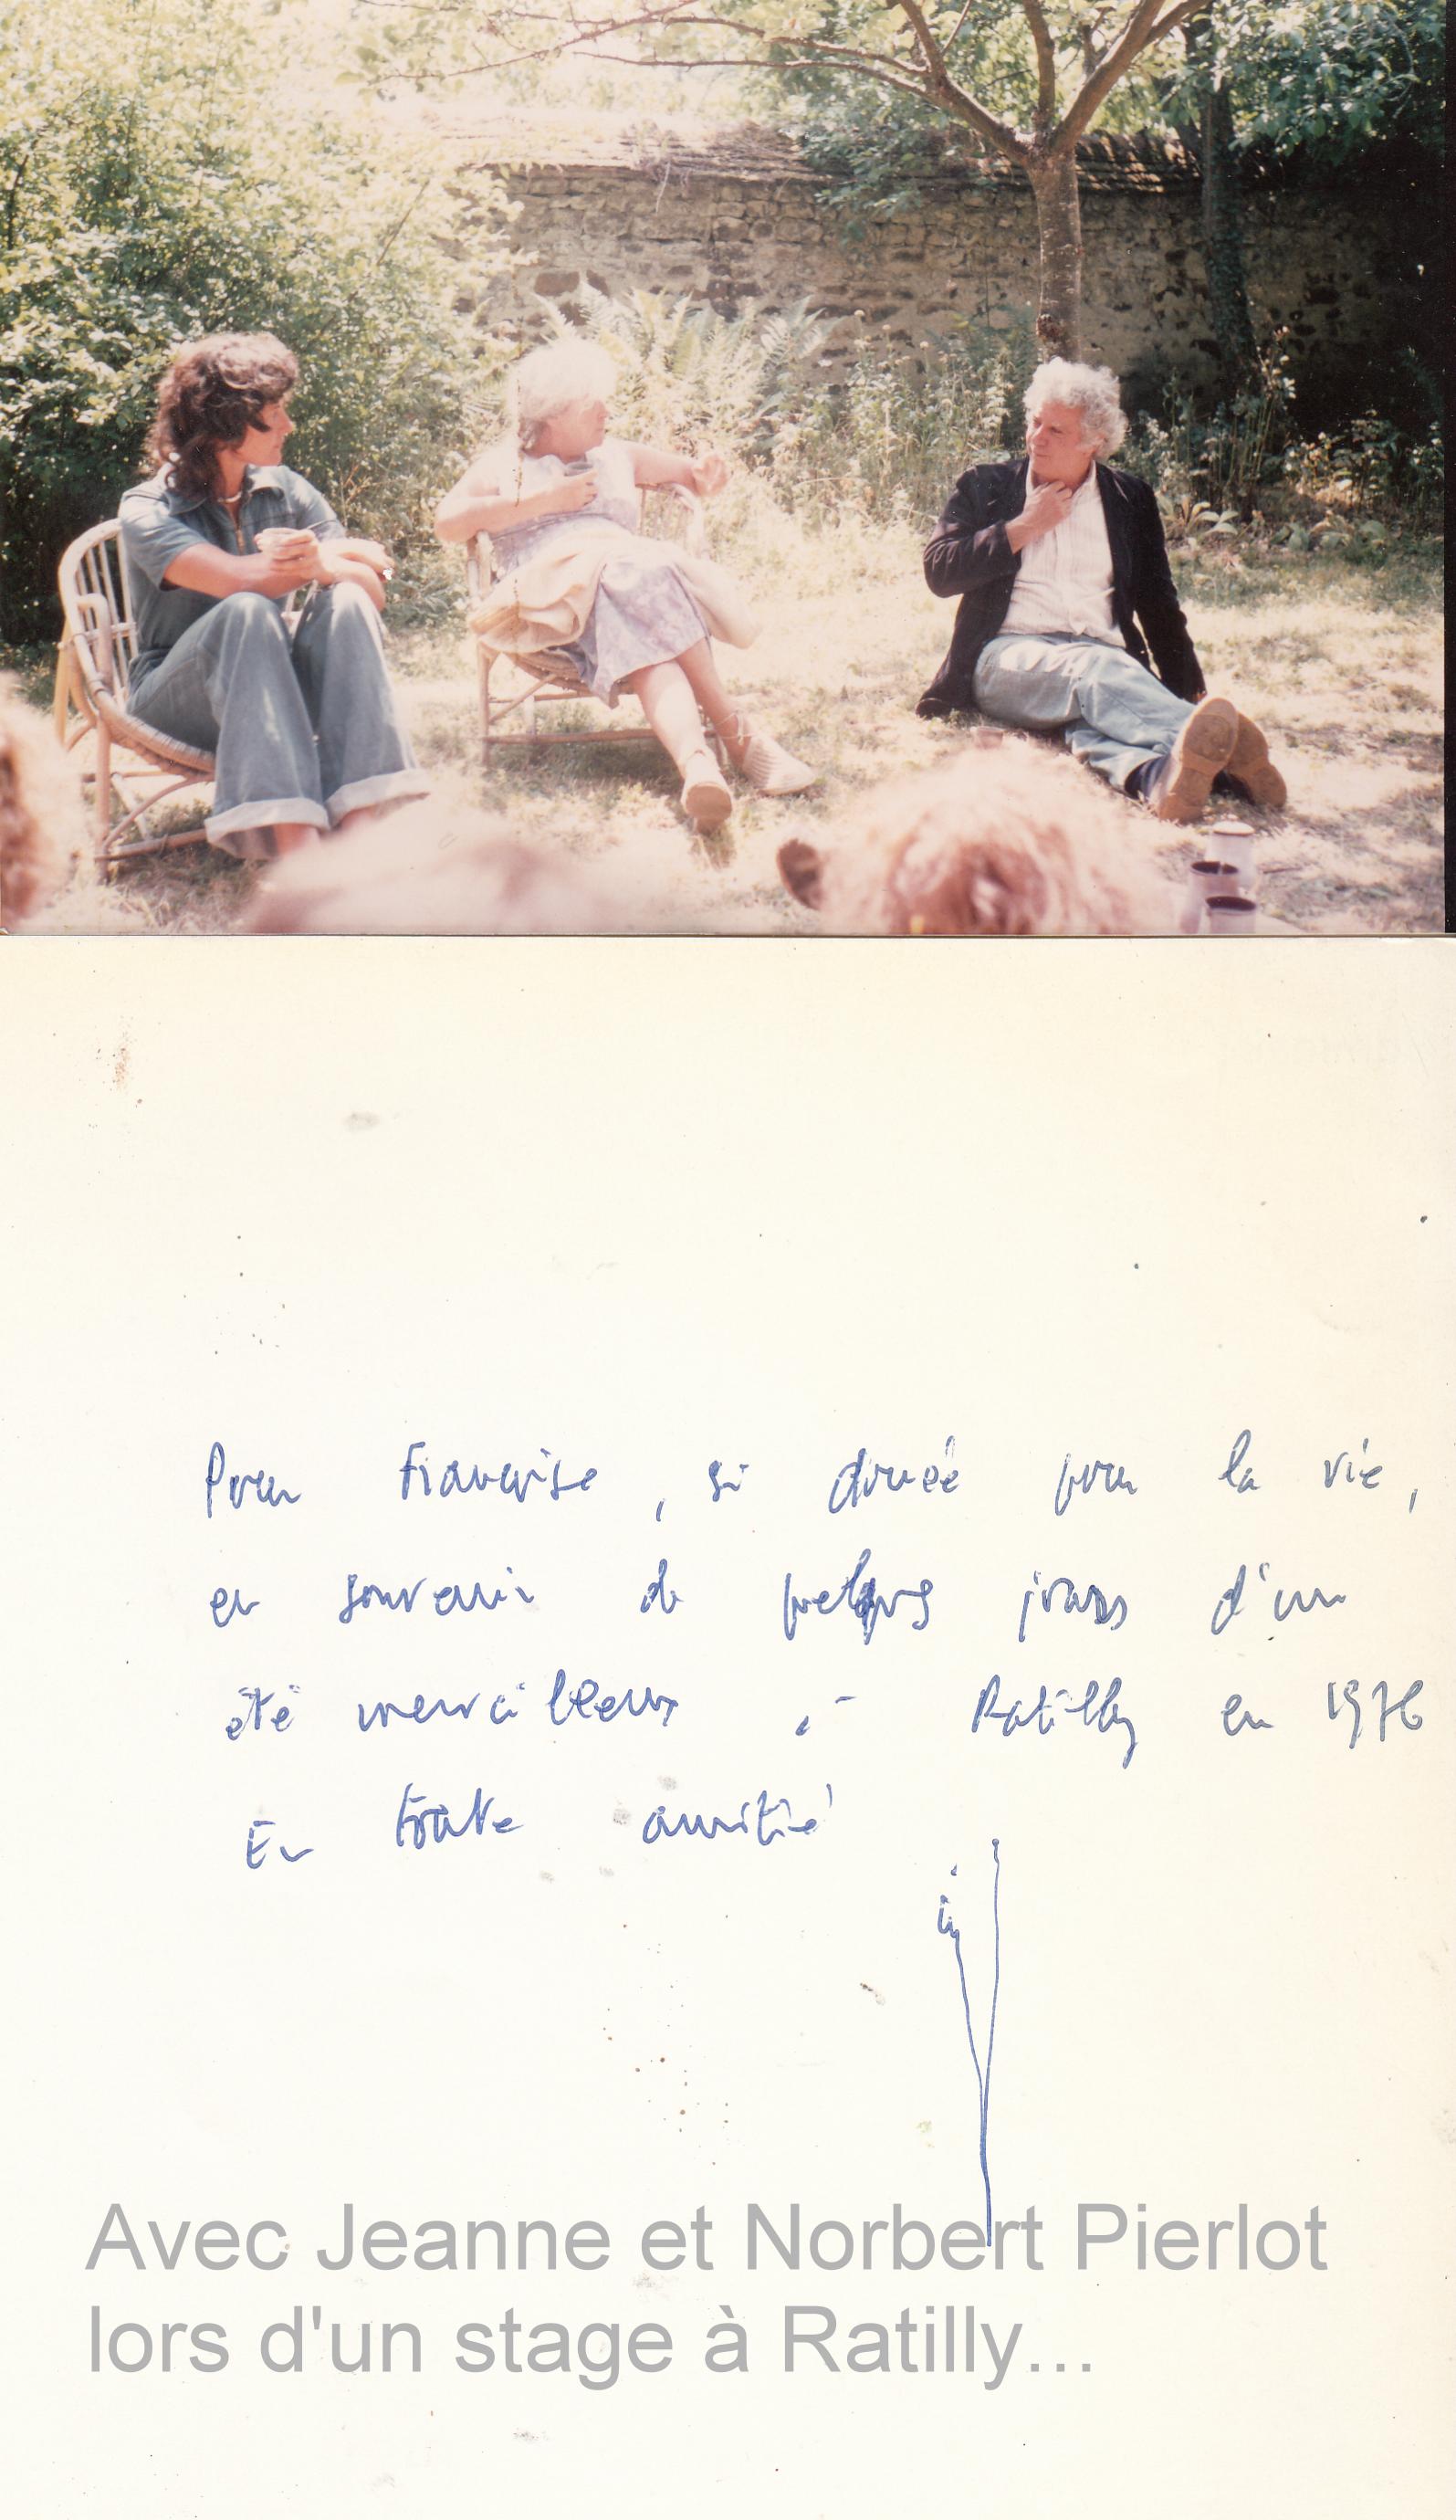 Pour Françoise, si douée pour la vie,
en souvenir de quelques jours d'un
été merveilleux à Ratilly en 1976
En toute amitié
Avec Jeanne et Norbert Pierlot
lors d'un stage à Ratilly...